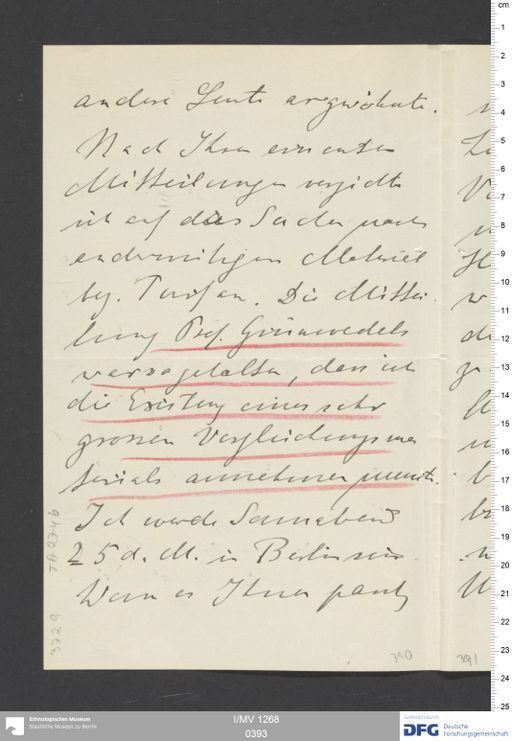 andere Leute argwöhnte.
Nach Ihren erneuten
Mitteilungen verzichte
ich auf das Suchen nach
anderweitigem Material
bez. Turfan. Die Mittei-
lung Prof. Grünwedels
war so gehalten, dass ich
die Existenz eines sehr
grossen Vergleichungsma-
terials annehmen musste.
Ich werde Sonnabend
25 d. M. in Berlin sein
Wenn es Ihnen passt,
3729
TA 2746
390
391
cm
1
2
3
4
5
6
7
8
9
10
11
12
13
14
15
16
17
18
19
20
21
22
23
24
25
Ethnologisches Museum
Staatliche Museen zu Berlin
I/MV 1268
0393
Gefördert durch
DFG Deutsche
Forschungsgemeinschaft